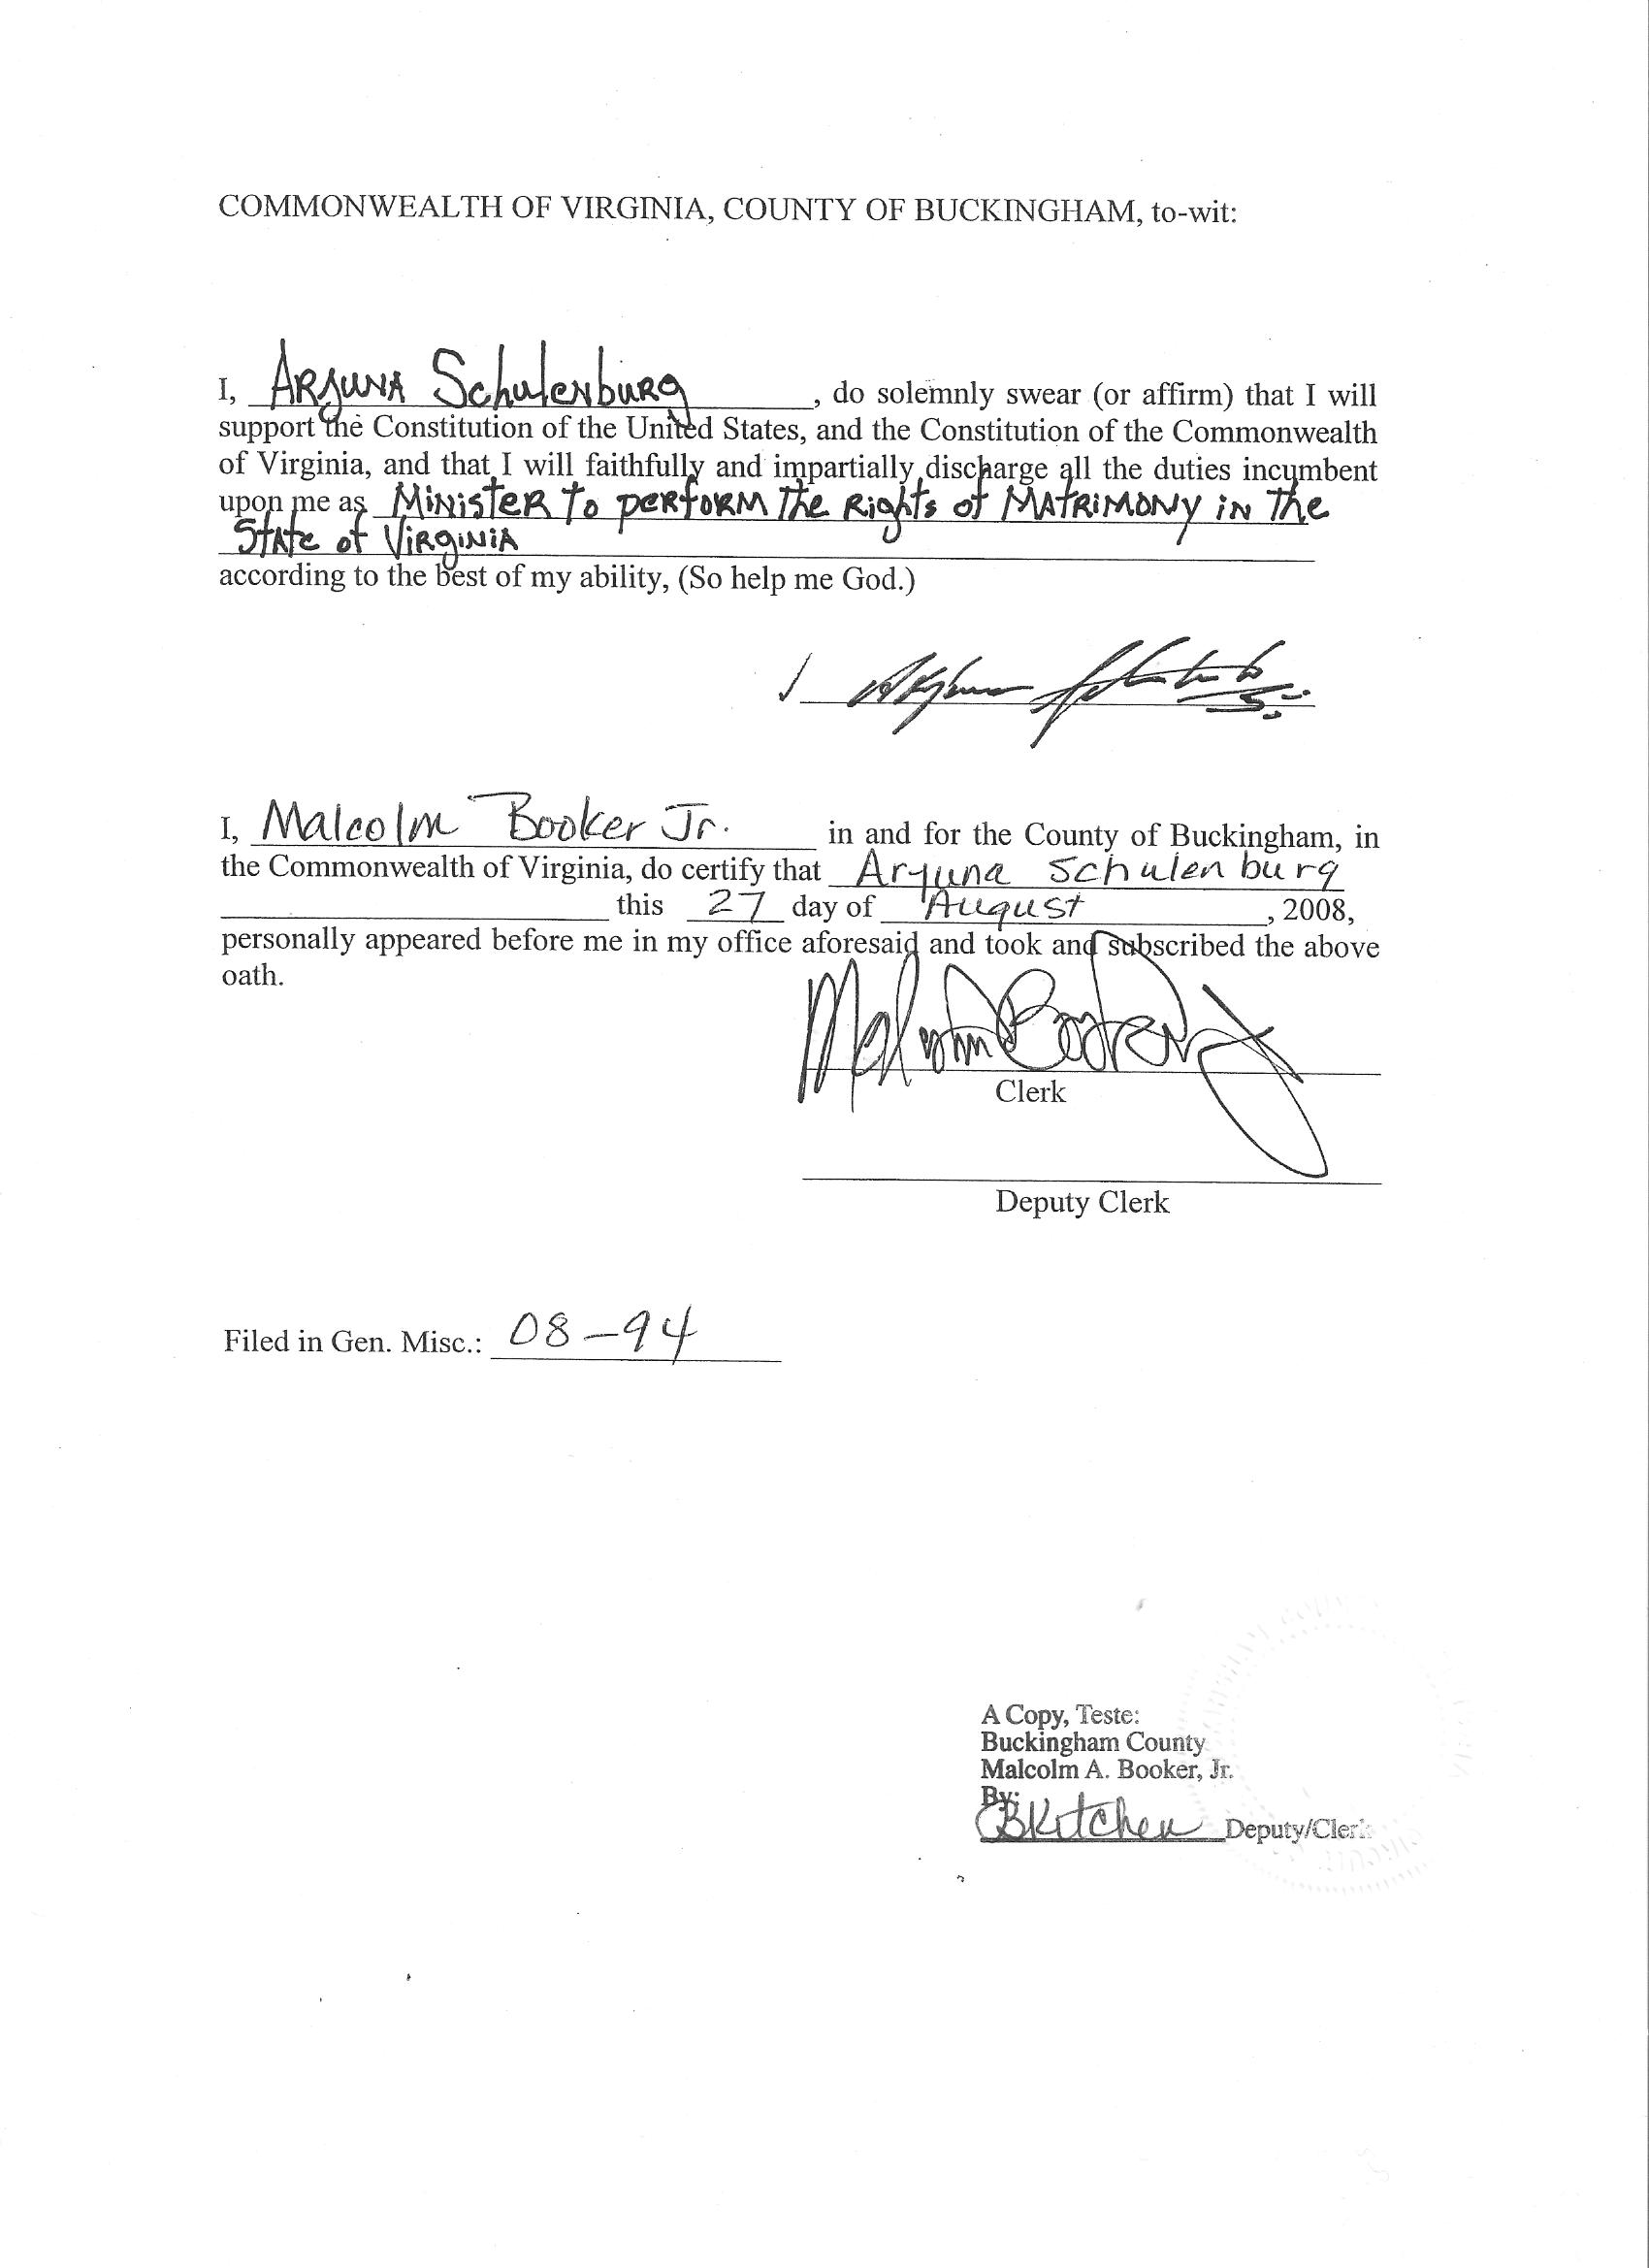 COMMONWEALTH OF VIRGINIA, COUNTY OF BUCKINGHAM, to-wit:
I, ARJUNA Schulenburg, do solemnly swear (or affirm) that I will
support the Constitution of the United States, and the Constitution of the Commonwealth
of Virginia, and that I will faithfully and impartially discharge all the duties incumbent
upon me as Minister to perform the Rights of Matrimony in the
State of Virginia
according to the best of my ability, (So help me God.)
I, Malcolm Booker Jr. in and for the County of Buckingham, in
the Commonwealth of Virginia, do certify that Arjuna Schulenburg
this 27 day of August, 2008,
personally appeared before me in my office aforesaid and took and subscribed the above
oath.
Clerk
Deputy Clerk
Filed in Gen. Misc.: 08-94
A Copy, Teste:
Buckingham County
Malcolm A. Booker, Jr.
By: BKitchen Deputy/Clerk